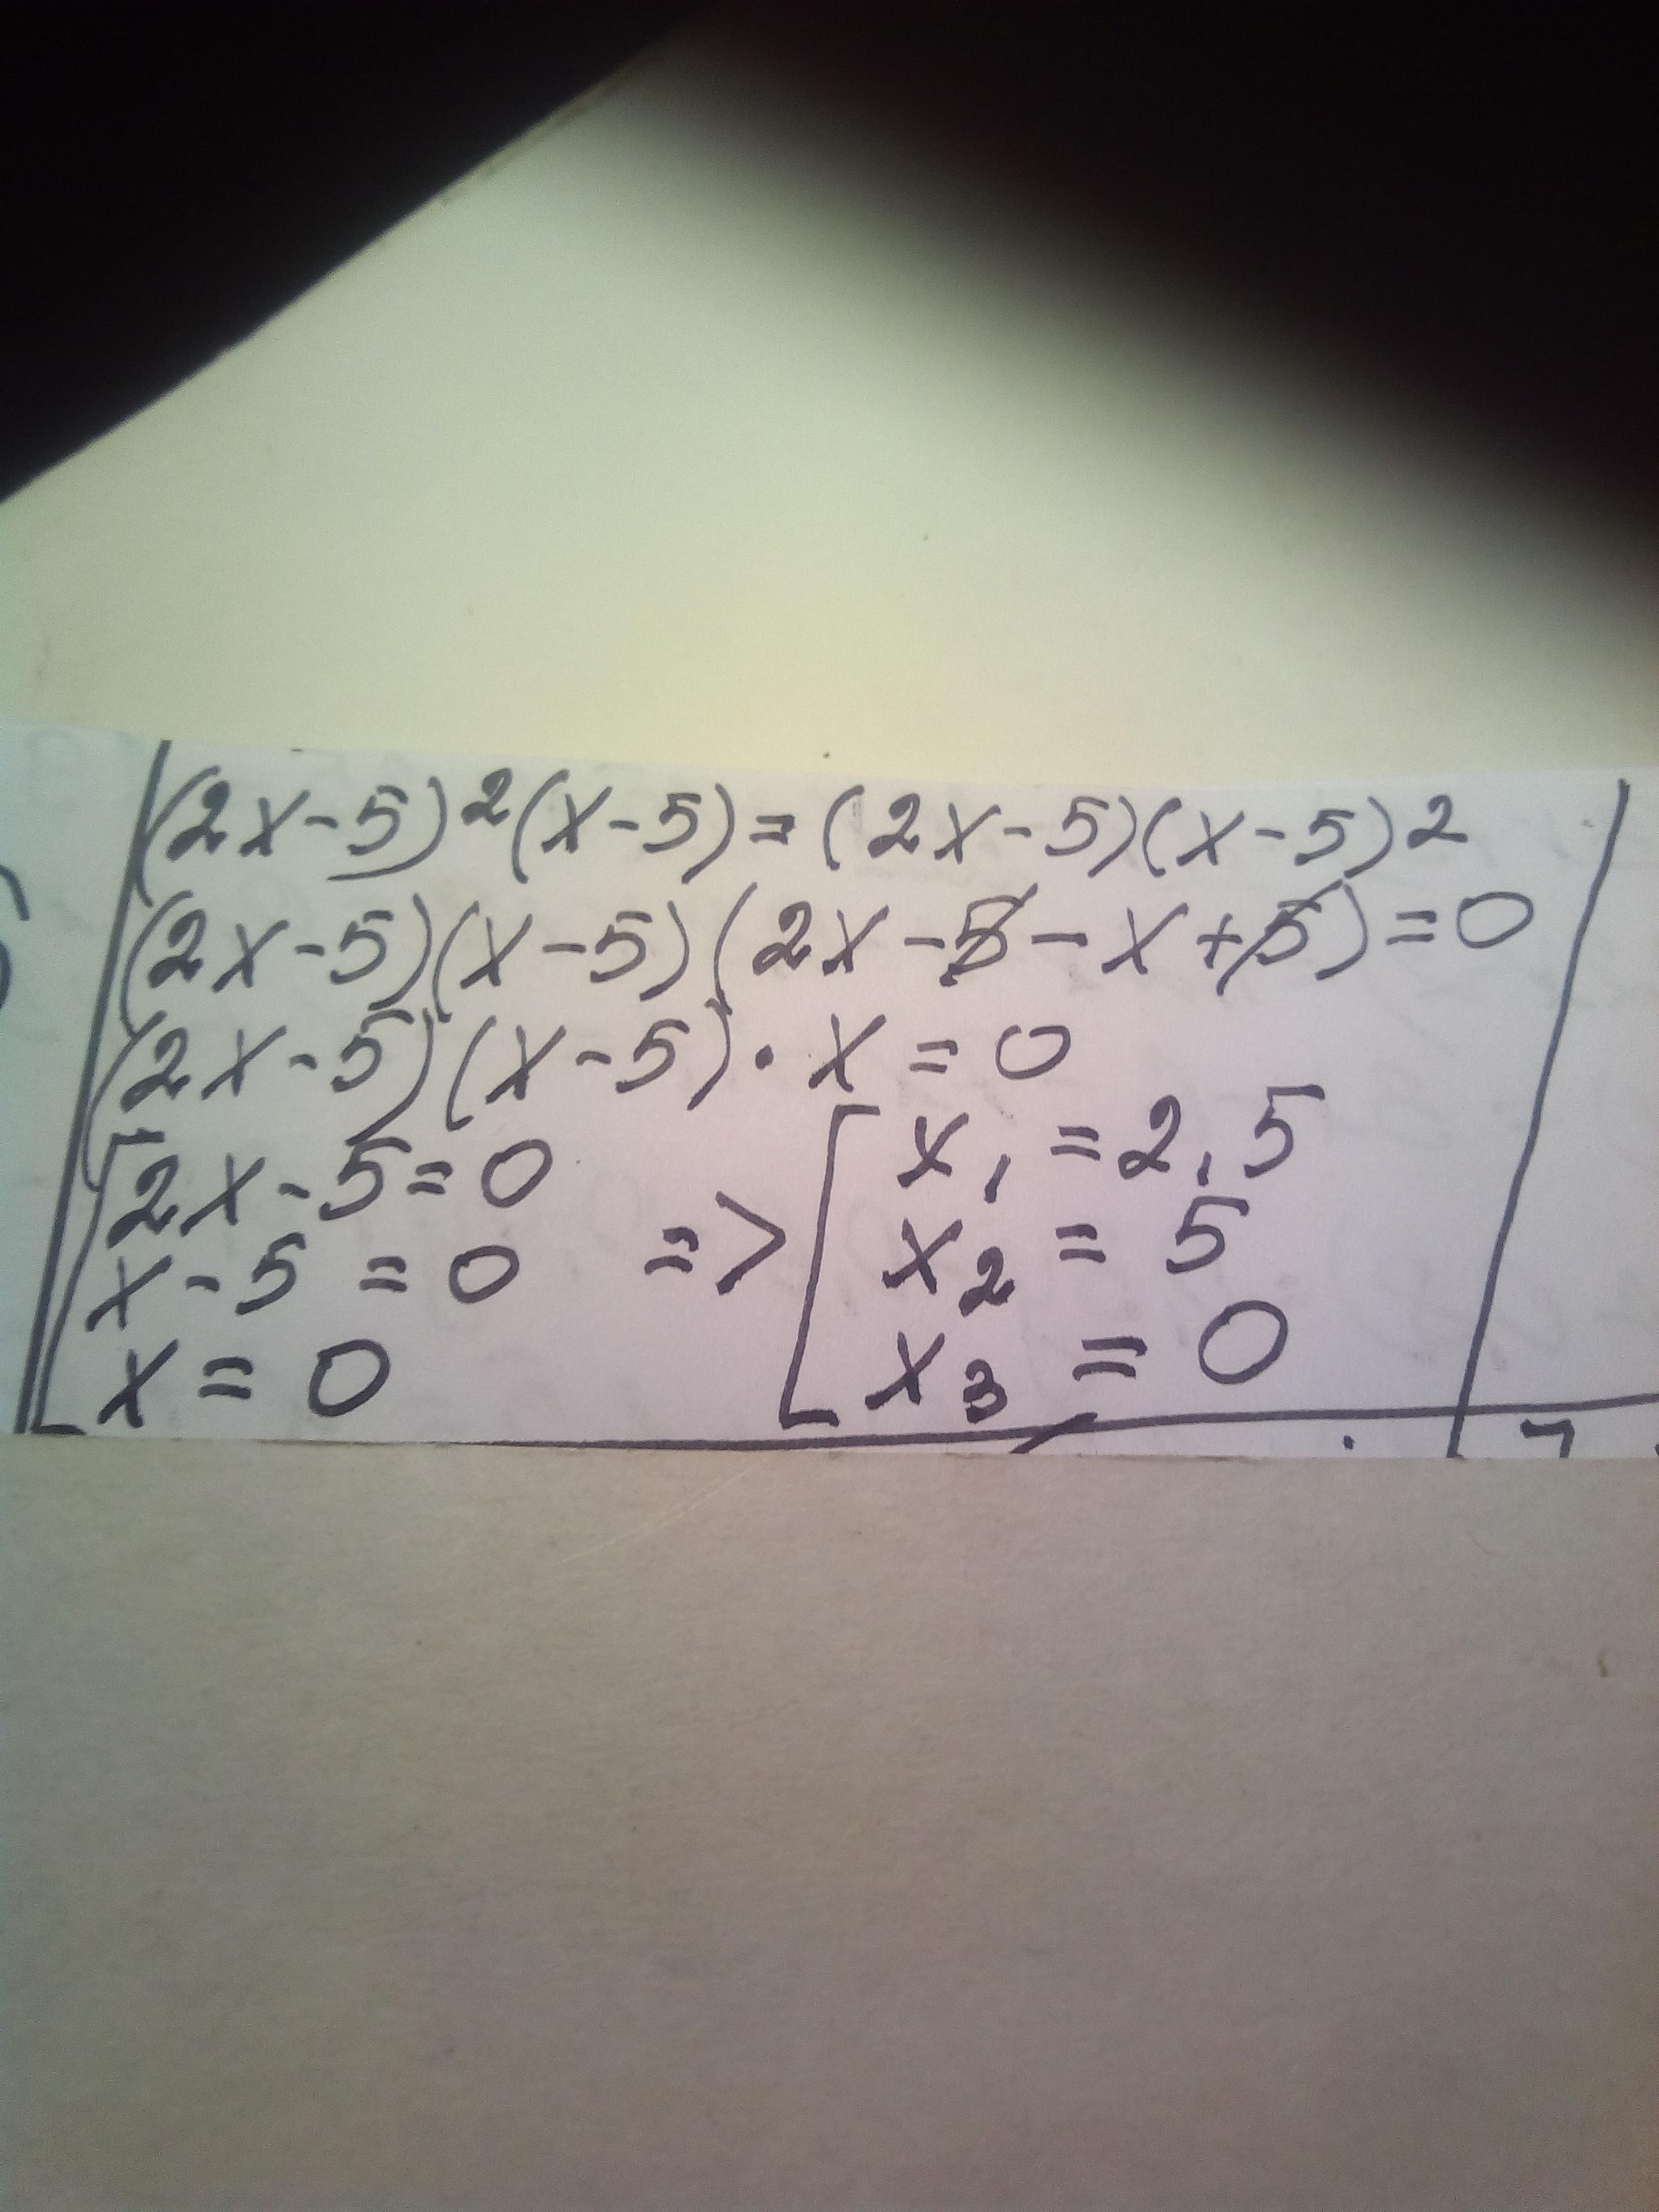 (2x-5)²(x-5)=(2x-5)(x-5)²
(2x-5)(x-5)(2x-5-x+5)=0
(2x-5)(x-5)·x=0
[2x-5=0
x-5=0
x=0
=> [x₁=2,5
x₂=5
x₃=0